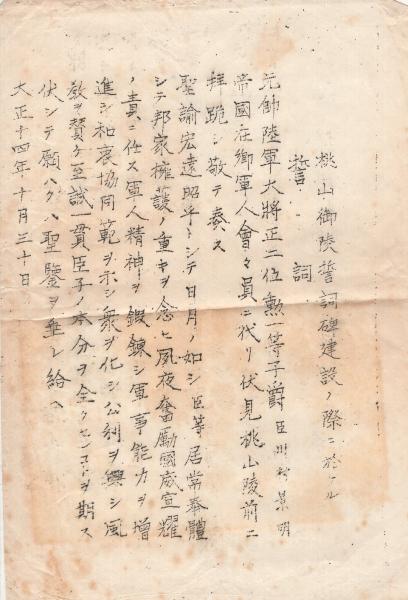 桃山御陵誓詞碑建設ノ際ニ於ケル
誓詞
元帥陸軍大將正二位勲一等子爵臣川村景明
帝國在郷軍人會々員ニ代リ伏見桃山陵前ニ
拜跪シ敬テ奏ス
聖諭宏遠昭乎トシテ日月ノ如シ臣等居常奉體
シテ邦家擁護ノ重キヲ念ヒ夙夜奮勵國威宣耀
ノ責ニ任ス軍人精神ヲ鍛錬シ軍事能力ヲ增
進シ和衷協同範ヲ示シ衆ヲ化シ公利ヲ興シ風
敎ヲ賛ケ至誠一貫臣子ノ本分ヲ全クセンコトヲ期ス
伏シテ願ハクハ聖鑒ヲ垂レ給ヘ
大正十四年十月三十日